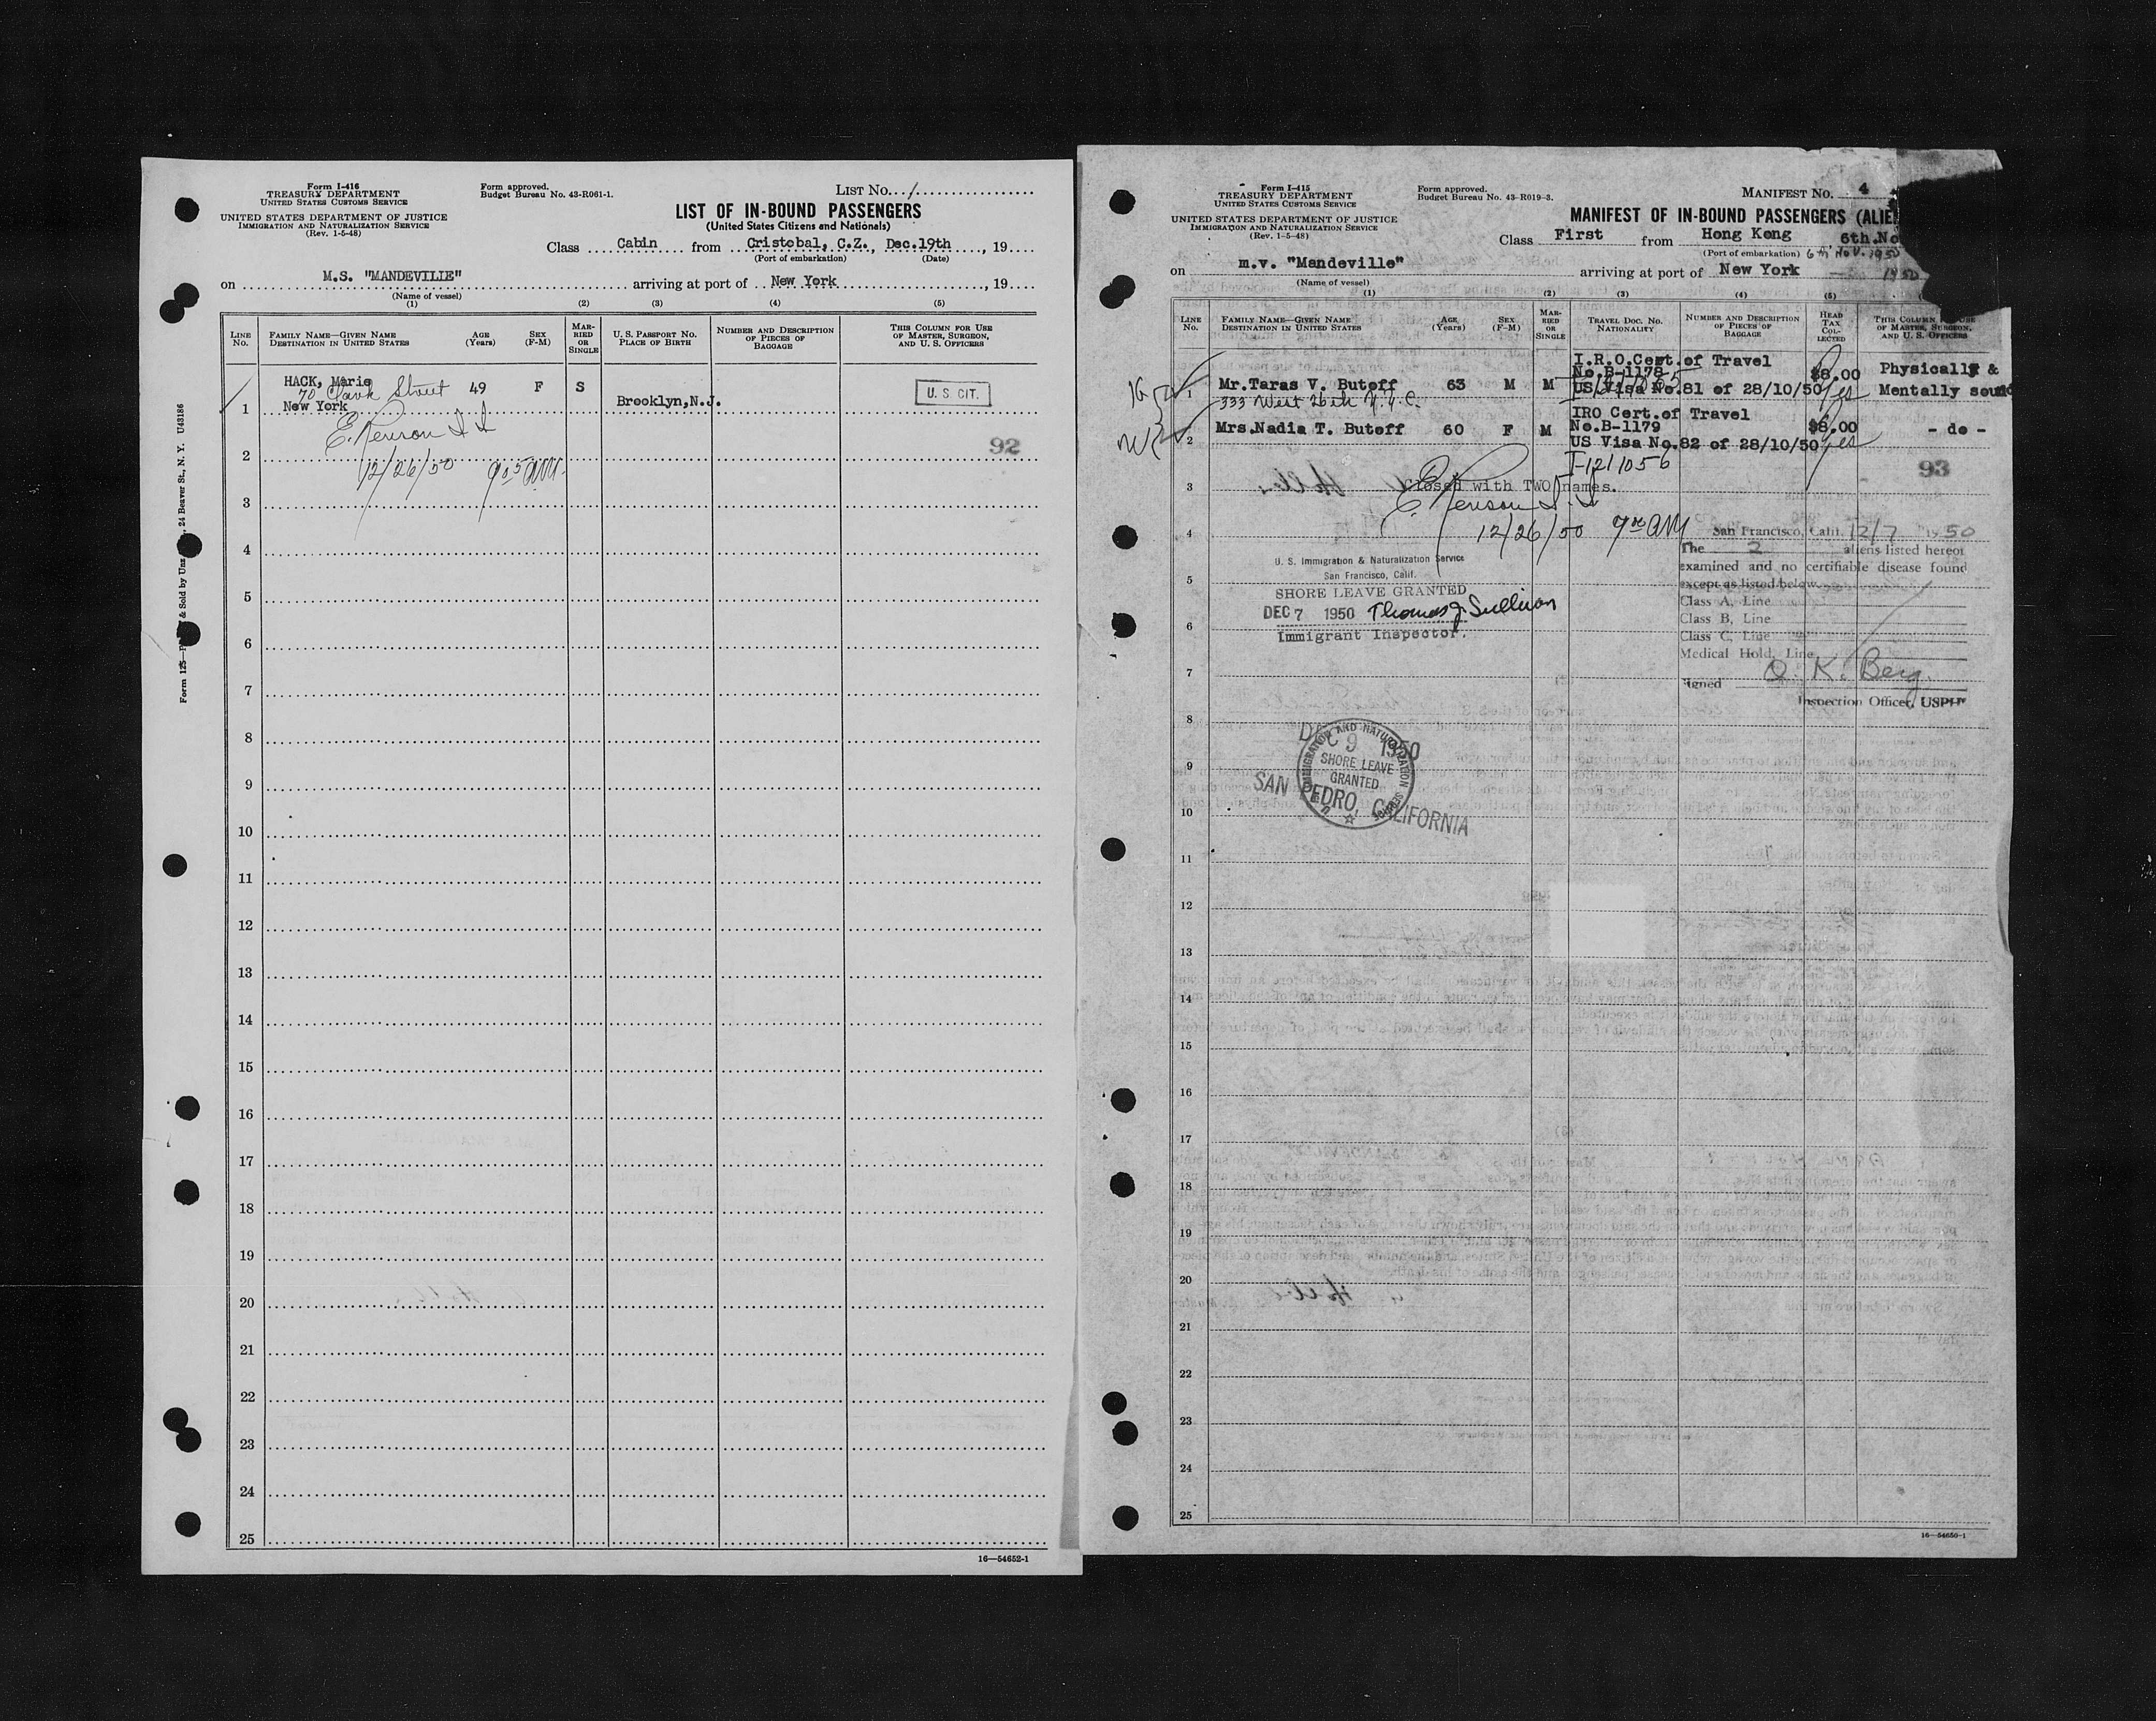 Form I-416
TREASURY DEPARTMENT
UNITED STATES CUSTOMS SERVICE
UNITED STATES DEPARTMENT OF JUSTICE
IMMIGRATION AND NATURALIZATION SERVICE
(Rev. 1-5-48)
Form approved.
Budget Bureau No. 43-R061-1.
LIST No. 1
LIST OF IN-BOUND PASSENGERS
(United States Citizens and Nationals)
Class Cabin from Cristobal, C.Z., Dec.19th, 19
(Port of embarkation) (Date)
on M.S. "MANDEVILLE" arriving at port of New York, 19
(Name of vessel)
(1) (2) (3) (4) (5)
LINE No.
FAMILY NAME—GIVEN NAME
DESTINATION IN UNITED STATES
AGE (Years)
SEX (F-M)
MARRIED OR SINGLE
U.S. PASSPORT NO.
PLACE OF BIRTH
NUMBER AND DESCRIPTION OF PIECES OF BAGGAGE
THIS COLUMN FOR USE OF MASTER, SURGEON, AND U.S. OFFICERS
HACK, Marie 49 F S
70 Clark Street
1 New York Brooklyn,N.J. U. S. CIT.
E. Renison I I
92
2
12/26/50 905 AM
3
4
5
6
7
8
9
10
11
12
13
14
15
16
17
18
19
20
21
22
23
24
25
16—54652-1
24 Beaver St., N. Y. U43186
Form I-415
TREASURY DEPARTMENT
UNITED STATES CUSTOMS SERVICE
UNITED STATES DEPARTMENT OF JUSTICE
IMMIGRATION AND NATURALIZATION SERVICE
(Rev. 1-5-48)
Form approved.
Budget Bureau No. 43-R019-3.
MANIFEST No. 4
MANIFEST OF IN-BOUND PASSENGERS (ALIE
Class First from Hong Kong, 6th.No
(Port of embarkation) 6th Nov. 1950
on m.v. "Mandeville" arriving at port of New York 1950
(Name of vessel)
(1) (2) (3) (4) (5)
LINE No.
FAMILY NAME—GIVEN NAME
DESTINATION IN UNITED STATES
AGE (Years)
SEX (F-M)
MARRIED OR SINGLE
TRAVEL DOC. NO.
NATIONALITY
NUMBER AND DESCRIPTION OF PIECES OF BAGGAGE
HEAD TAX COLLECTED
THIS COLUMN USE OF MASTER, SURGEON, AND U.S. OFFICERS
I.R.O.Cert.of Travel
No.B-1178
1 Mr.Taras V. Butoff 63 M M US Visa No.81 of 28/10/50 $8.00 yes Physically & Mentally sound
333 West 26th N.Y.C.
IRO Cert.of Travel
2 Mrs.Nadia T. Butoff 60 F M No.B-1179 $8.00 yes - do -
US Visa No.82 of 28/10/50
I-1211056
93
3 Closed with TWO names.
E. Renison I. I
4 12/26/50 900 AM
San Francisco, Calif. 12/7 1950
The 2 aliens listed hereon
examined and no certifiable disease found
except as listed below
Class A, Line
Class B, Line
Class C, Line
Medical Hold, Line
Signed O. K. Berg.
Inspection Officer, USPH
U. S. Immigration & Naturalization Service
San Francisco, Calif.
5
SHORE LEAVE GRANTED
DEC 7 1950 Thomas J. Sullivan
6
Immigrant Inspector.
7
8
DEC 9 1950
U.S. IMMIGRATION AND NATURALIZATION SERVICE
9
SHORE LEAVE
GRANTED
SAN PEDRO, CALIFORNIA
10
11
12
13
14
15
16
17
18
19
20
21
22
23
24
25
16—54650-1